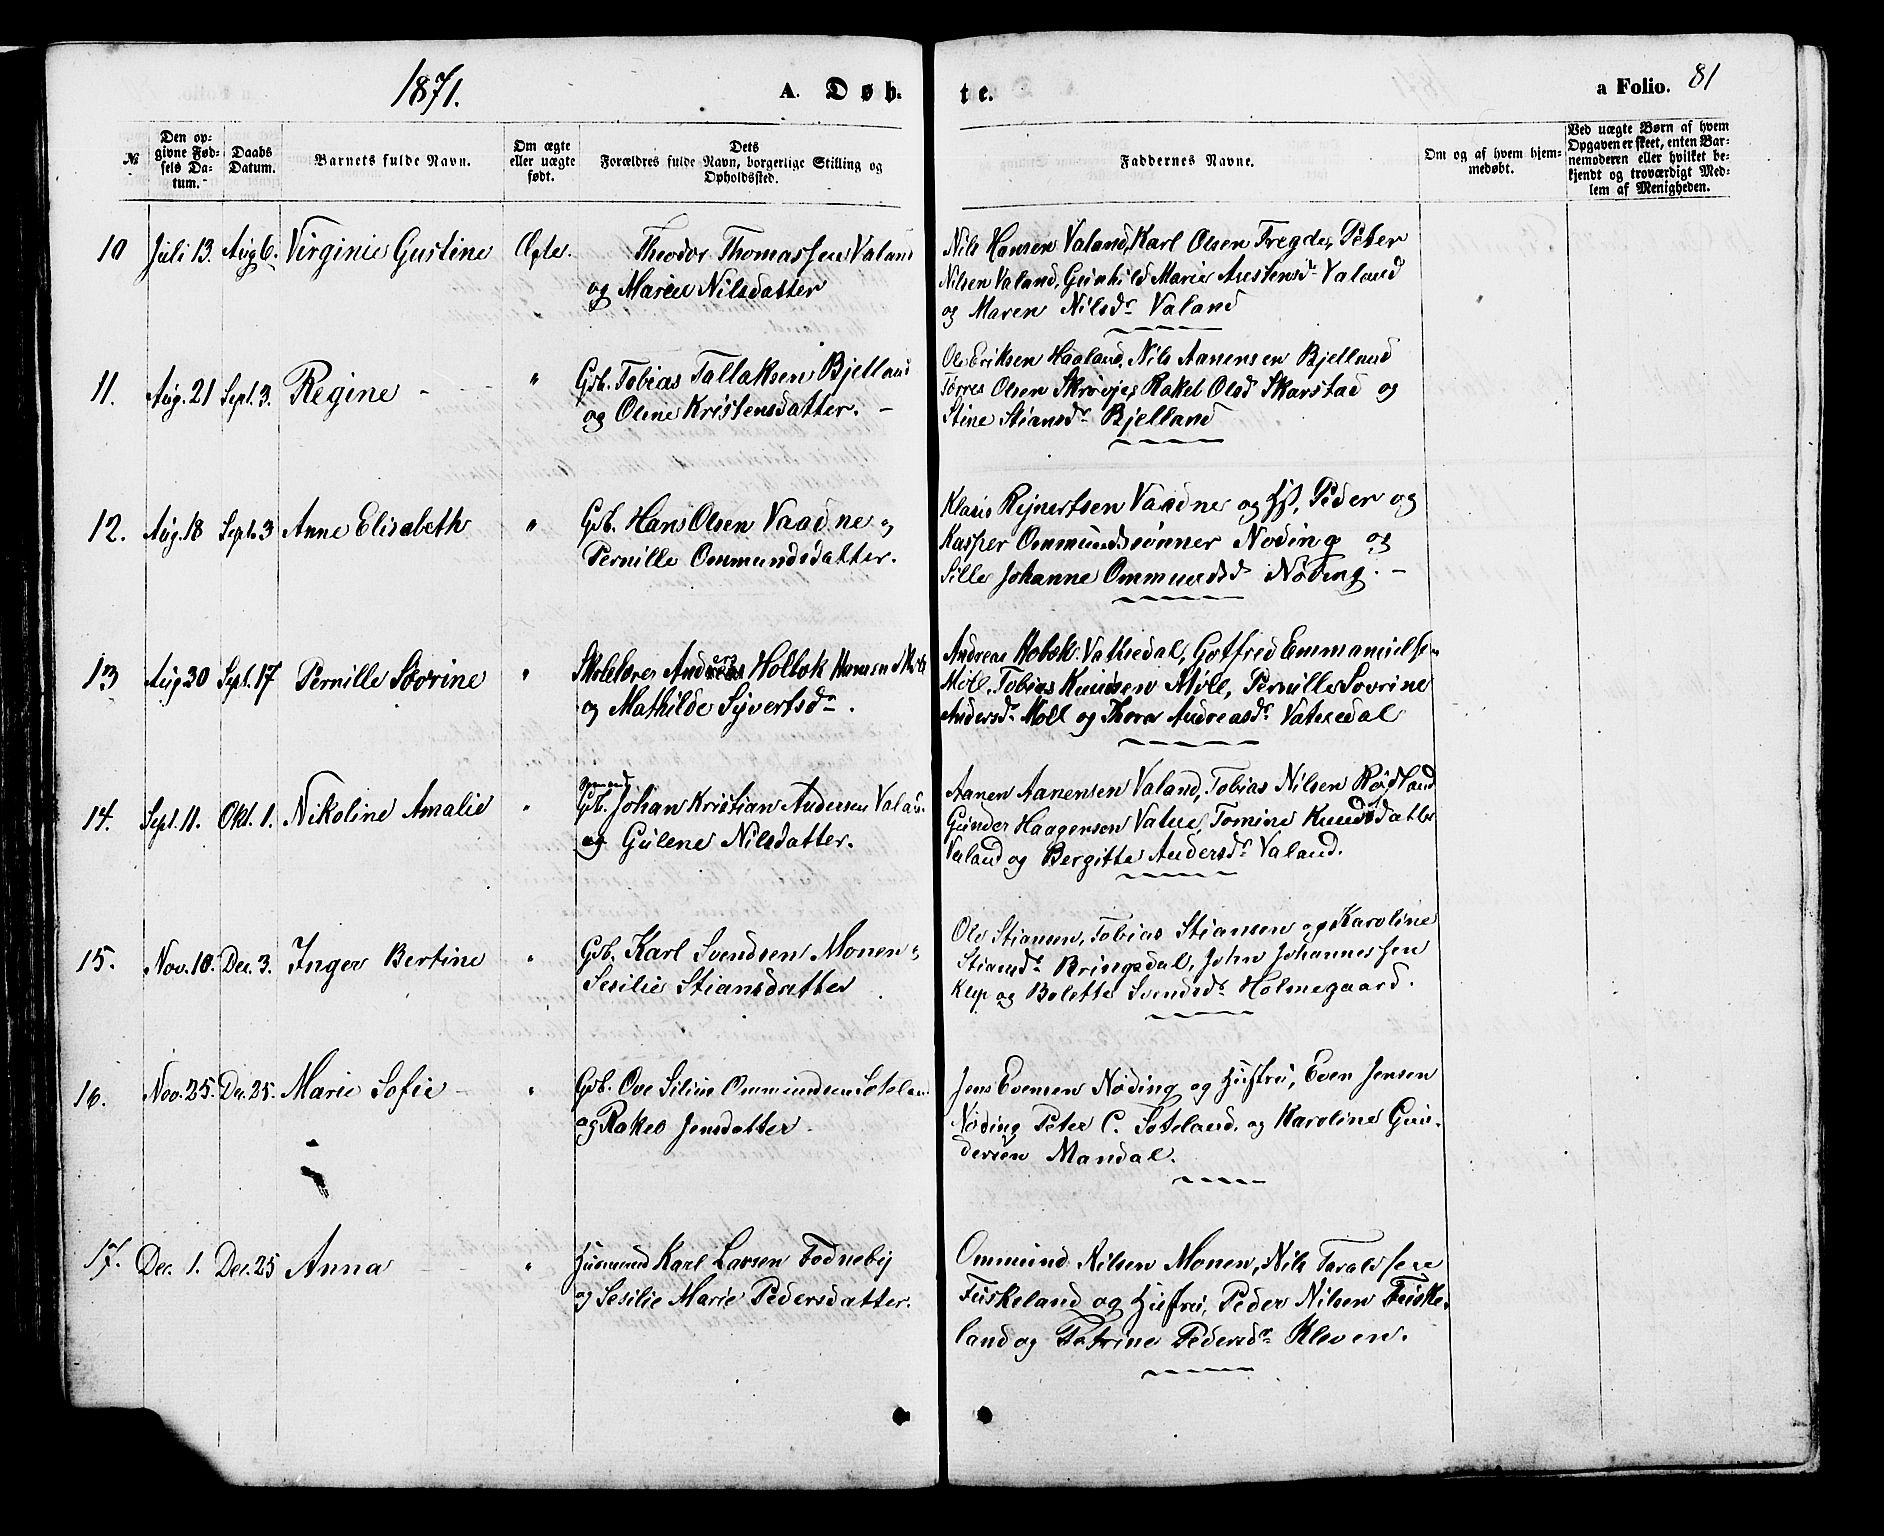 1871.
A. Døb-
te.
a Folio. 81
№
Den op-
givne Fød-
sels Da-
tum.
Daabs
Datum.
Barnets fulde Navn.
Om ægte
eller uægte
født.
Dets
Forældres fulde Navn, borgerlige Stilling og
Opholdssted.
Faddernes Navne.
Om og af hvem hjem-
medøbt.
Ved uægte Børn af hvem
Opgaven er skeet, enten Bar-
nemoderen eller hvilket be-
kjendt og troværdigt Med-
lem af Menigheden.
10 Juli 13. Aug 6. Virginie Gustine Ægte. Theodor Thomassen Valand
og Maren Nilsdatter
Nils Hansen Valand, Karl Olsen Fregde, Peter
Nilsen Valand, Gunhild Marie Austensdr Valand
og Maren Nilsdr Valand
11. Aug. 21 Sept. 3. Regine - " Gdb. Tobias Tallaksen Bjelland
og Oline Kristensdatter. -
Ole Eriksen Haaland, Nils Aanensen Bjelland
Torres Olsen Skrøvje, Rakel Olsd Skarstad og
Stine Stiansdr Bjelland
12. Aug. 18 Sept. 3 Anne Elisabeth " Gdb. Hans Olsen Vaadne og
Pernille Ommundsdatter.
Klaus Rejnertsen Vaadne og Hst, Peder og
Kasper Ommundssønner Nøding og
Sille Johanne Ommundsd Nøding. -
13 Aug 30 Sept. 17 Pernille Sovrine " Skolelærer Andreas Holbek
og Mathilde Syvertsdr.
Andreas Holbek Vatnedal, Gotfred Emmanuelsen
Møll, Tobias Knudsen Møll, Pernille Sovrine
Andersdr Møll og Thora Andreasdr Vatnedal
14. Sept. 11. Okt. 1. Nikoline Amalie " Gdb. Johan Kristian Andersen Valand
og Gulene Nilsdatter.
Aanen Aanensen Valand, Tobias Nilsen Røjdland
Gunder Haagensen Vatne, Tomine Knudsdatter
Valand og Bergitte Andersdr Valand.
15. Nov. 10. Dec. 3. Inger Bertine " Gdb. Karl Svendsen Monen og
Sesilie Stiansdatter
Ole Stiansen, Tobias Stiansen og Karoline
Stiansdr Bringsdal, John Johannessen
Klep og Bolette Svendsdr Holmegaard.
16. Nov. 25. Dec. 25. Marie Sofie - " Gdb. Ove Silius Ommundsen Søteland
og Rakel Jensdatter.
Jens Evensen Nøding og Hustru, Even Jensen
Nøding Peter C. Søteland, og Karoline Gun-
dersen Mandal.
17. Dec. 1. Dec. 25 Anna " Husmand Karl Larsen Fodneby
og Sesilie Marie Pedersdatter.
Ommund Nilsen Monen, Nils Taraldsen
Fuskeland og Hustru, Peder Nilsen Fuske-
land og Petrine Pedersdr Kleven.